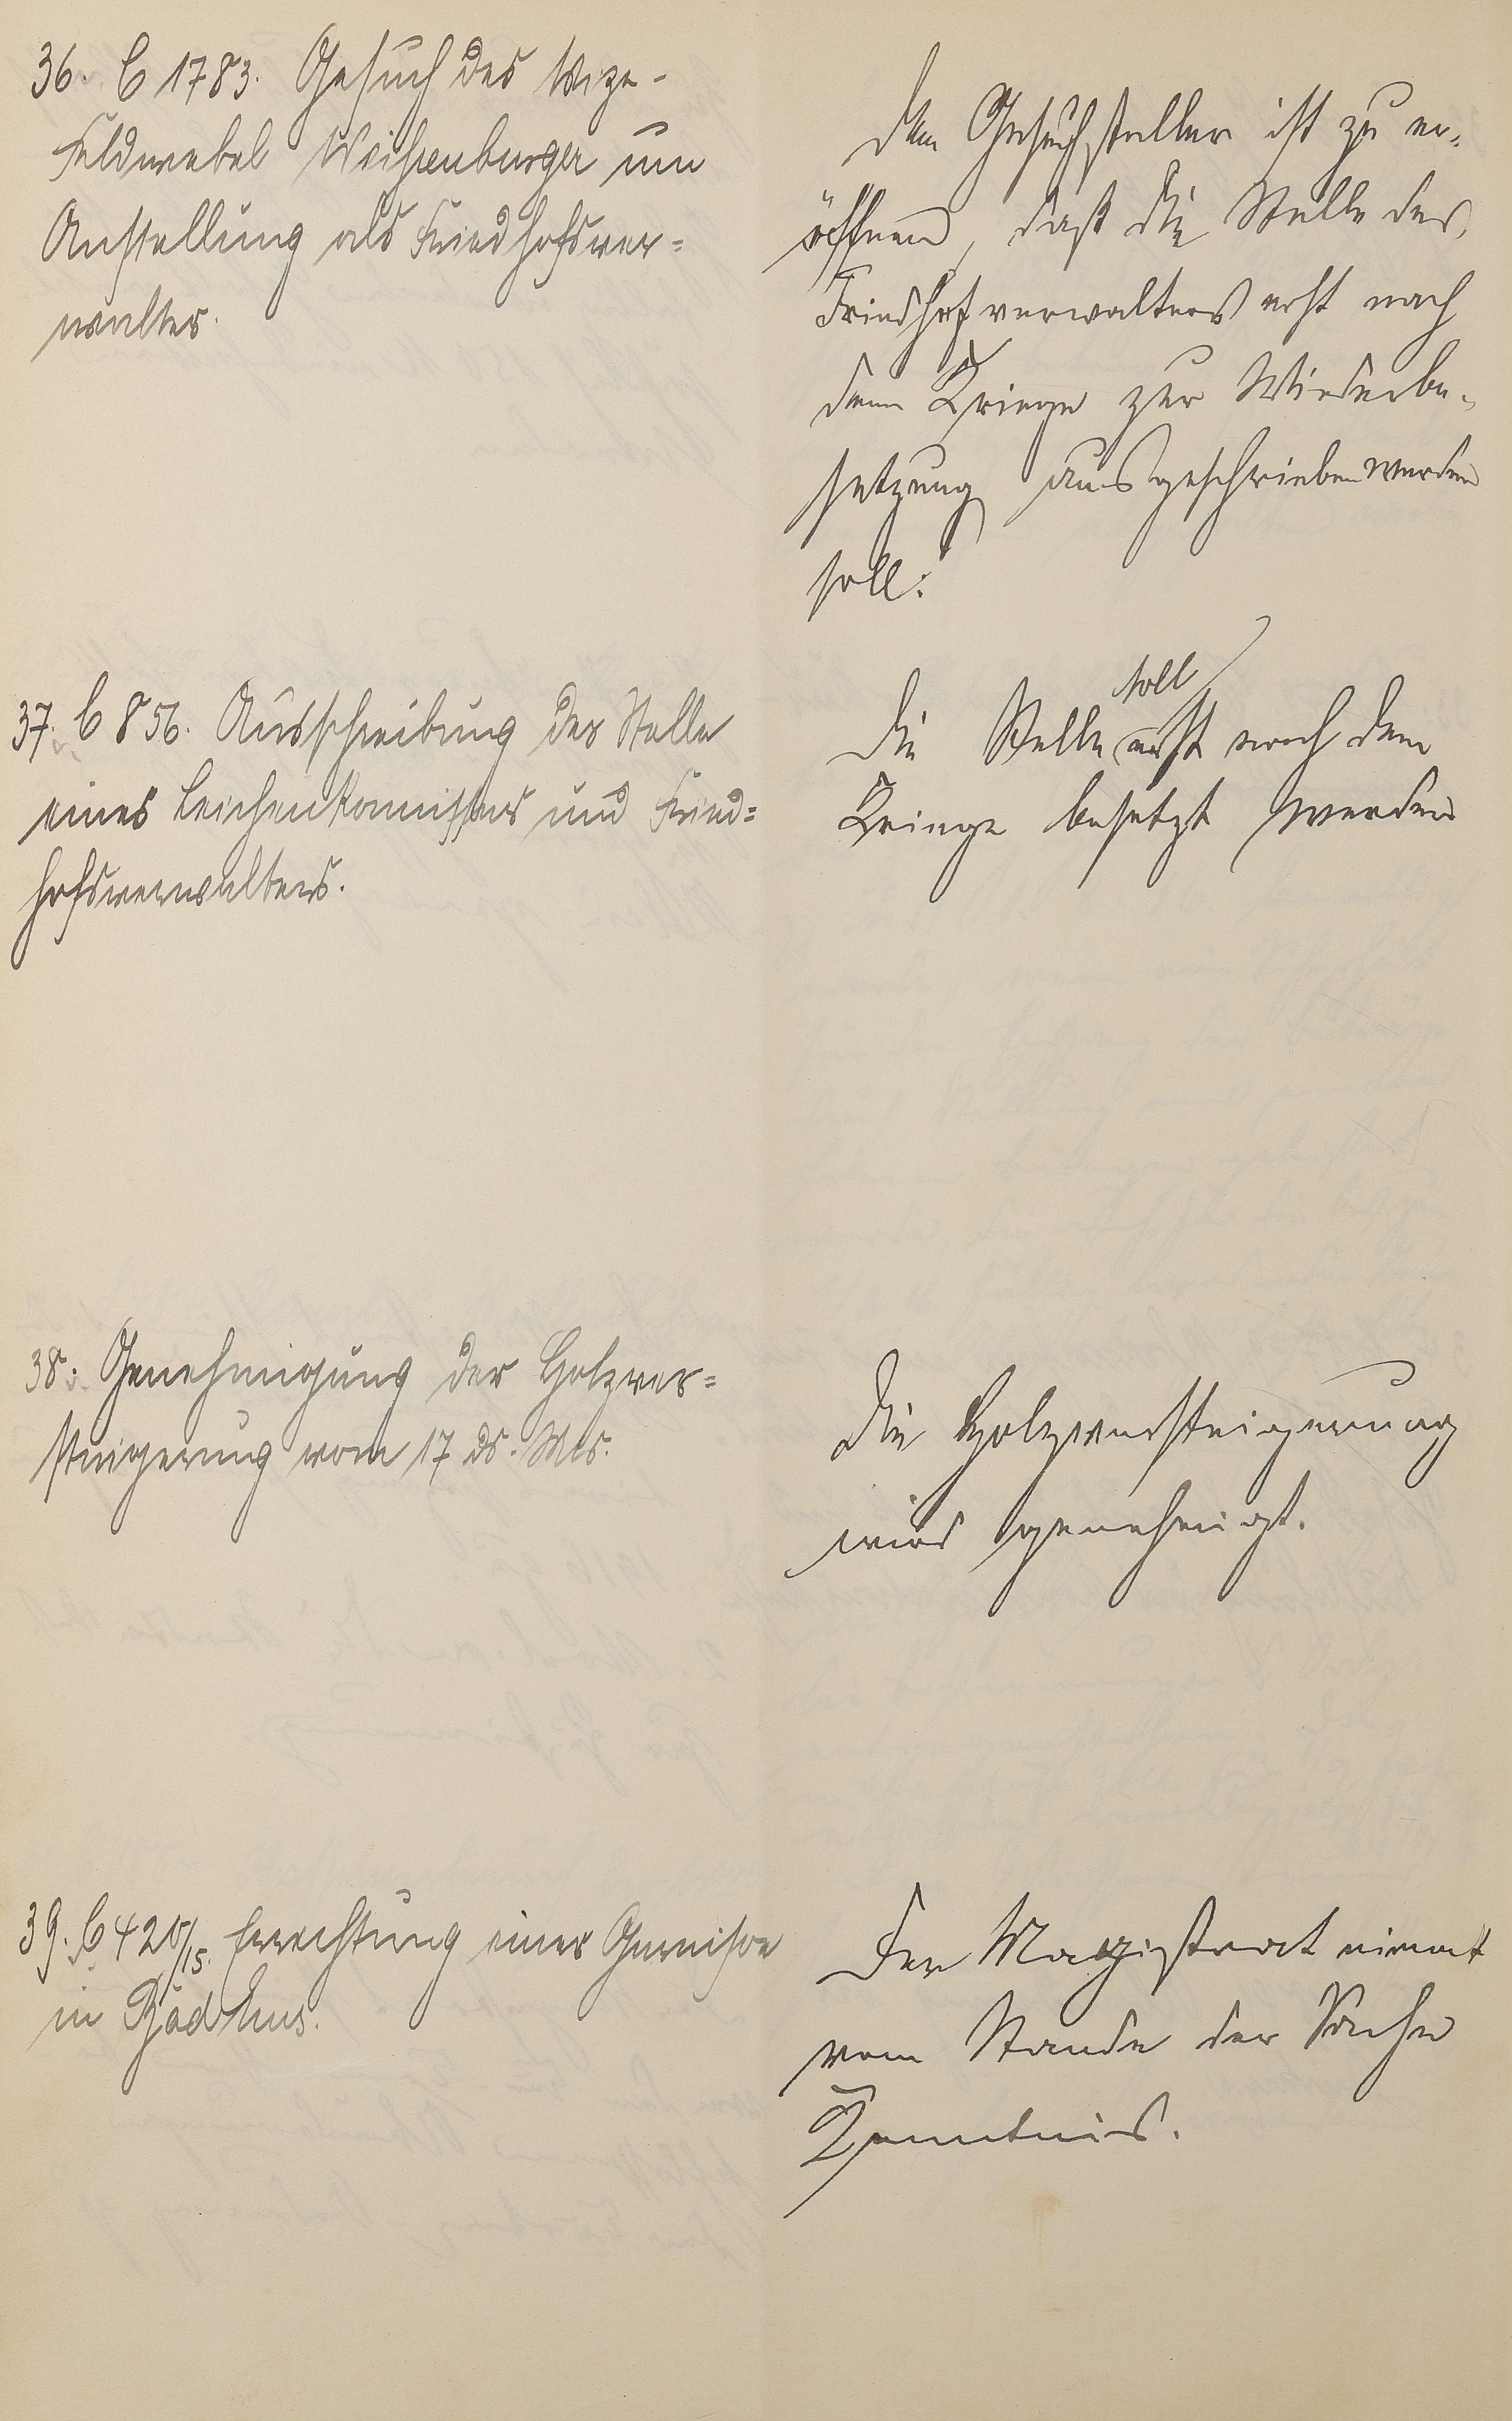 36. C 1783. Gesuch des Vize-
Feldwebel Weihenburger um
Anstellung als Friedhofsver=
walter.
Dem Gesuchsteller ist zu er-
öffnen, daß die Stelle des
Friedhofverwalters erst nach
dem Kriege zur Wiederbe-
setzung ausgeschrieben werden
soll.
37. C 856. Ausschreibung der Stelle
eines Leichenkomissärs und Fried=
hofsverwalters.
soll
Die Stelle erst nach dem
Kriege besetzt werden
38. Genehmigung der Holzver=
steigerung vom 17 ds. Mts.
Die Holzversteigerung
wird genehmigt.
39. C 420/15. Errichtung einer Garnison
in
Der Magistrat nimmt
vom Stande der Sache
Kenntnis.